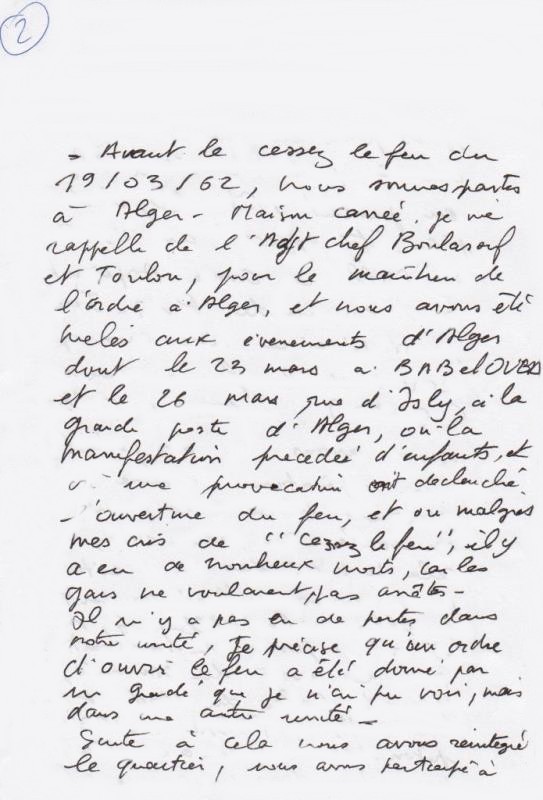 2
- Avant le cessez le feu du
19/03/62, nous sommes partis
à Alger - Maison carrée, je me
rappelle de l'Adjt chef Boulasouf
et Toulon, pour le maintien de
l'ordre à Alger, et nous avons été
melés aux évenements d'Alger
dont le 23 mars à BAB el OUED
et le 26 mars rue d'Isly, à la
grande poste d'Alger, où la
manifestation precedée d'enfants, et
une provocation ont declenché
l'ouverture du feu, et ou malgrés
mes cris de "Cessez le feu", il y
a eu de nombreux morts, car les
gars ne voulaient pas arrêter -
Il n'y a pas eu de pertes dans
notre unité, Je précise qu'un ordre
d'ouvrir le feu a été donné par
un gradé que je n'ai pu voir, mais
dans une autre unité -
Suite à cela nous avons reintegré
le quartier, nous avons participé à